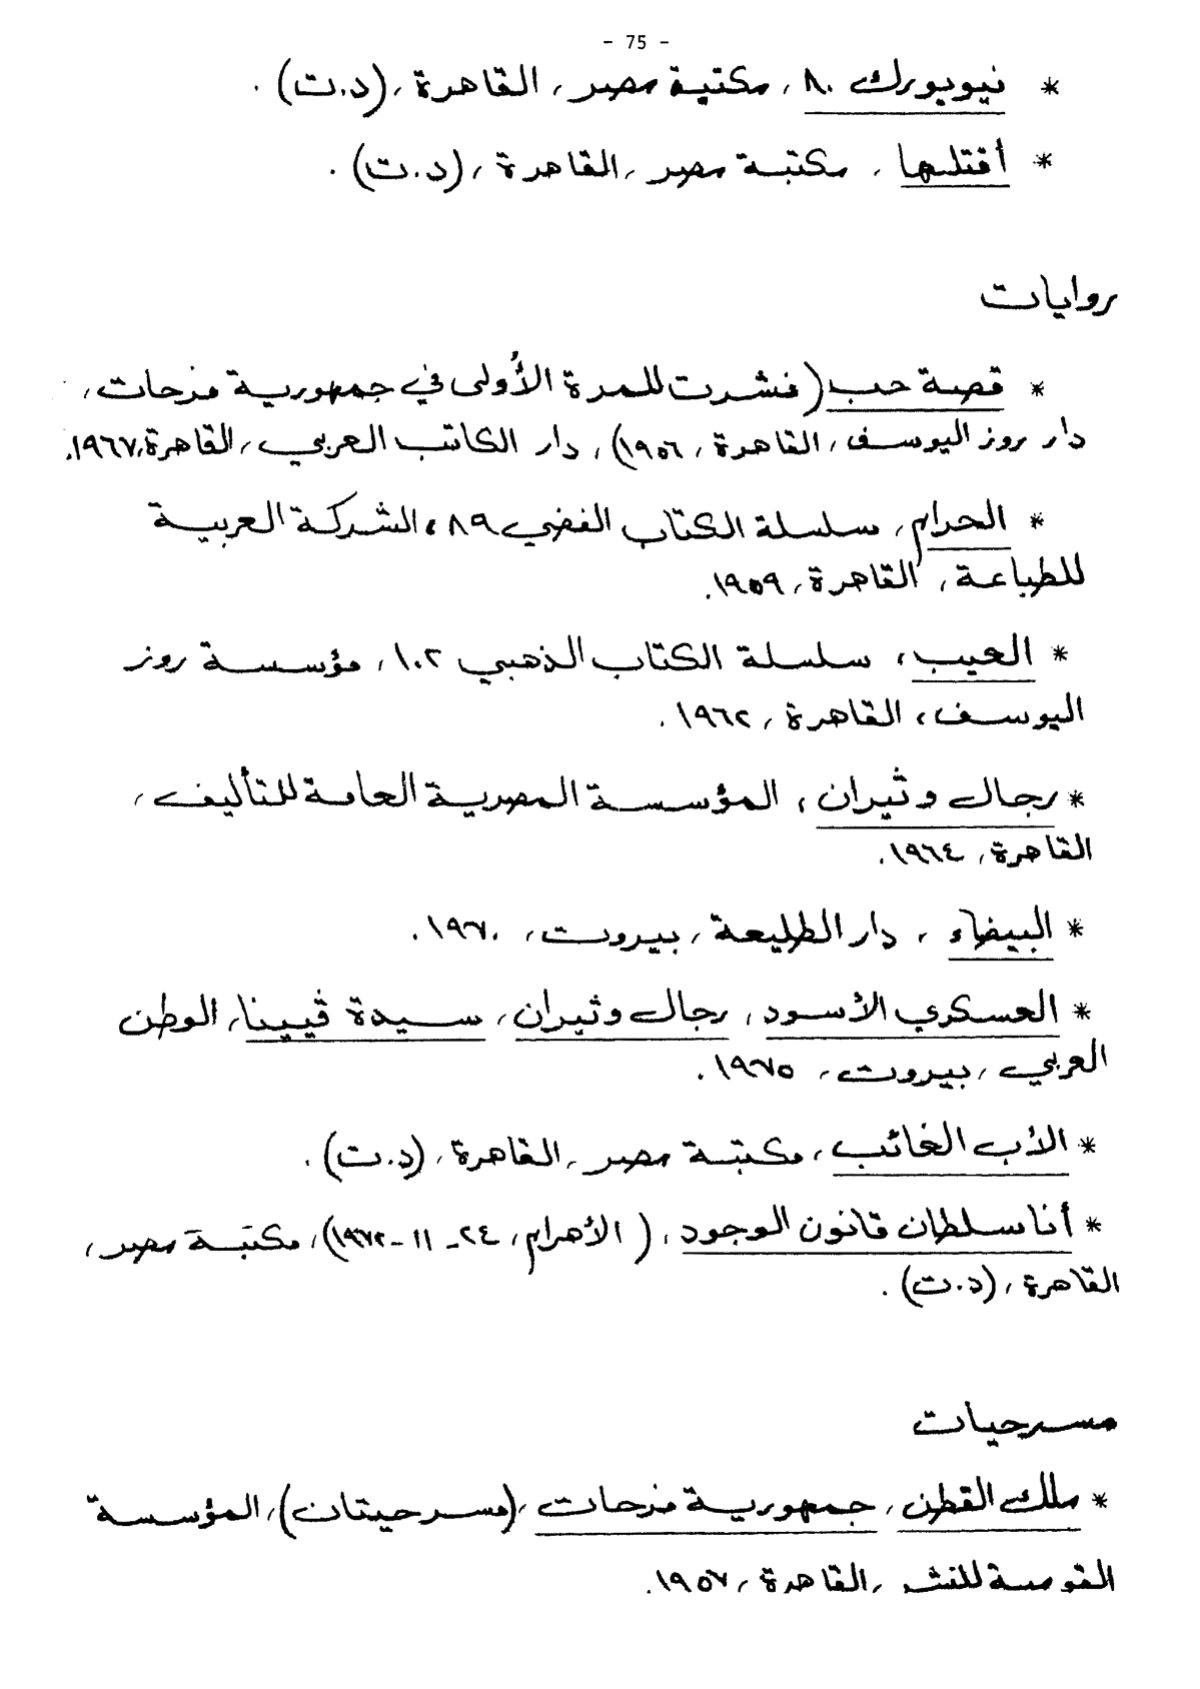 - 75 -
* نيويورك ٨٠، مكتبة مصر، القاهرة، (د.ت).
* أقتلها، مكتبة مصر، القاهرة، (د.ت).
روايات
* قصة حب (نشرت للمرة الأولى في جمهورية فرحات،
دار روز اليوسف، القاهرة، ١٩٥٦)، دار الكاتب العربي، القاهرة، ١٩٦٧.
* الحرام، سلسلة الكتاب الفضي ٨٩، الشركة العربية
للطباعة، القاهرة، ١٩٥٩.
* العيب، سلسلة الكتاب الذهبي ١٠٢، مؤسسة روز
اليوسف، القاهرة، ١٩٦٢.
* رجال وثيران، المؤسسة المصرية العامة للتأليف،
القاهرة، ١٩٦٤.
* البيضاء، دار الطليعة، بيروت، ١٩٧٠.
* العسكري الأسود، رجال وثيران، سيدة ڤيينا، الوطن
العربي، بيروت، ١٩٧٥.
* الأب الغائب، مكتبة مصر، القاهرة، (د.ت).
* أنا سلطان قانون الوجود، (الأهرام، ٢٤-١١-١٩٧٢)، مكتبة مصر،
القاهرة، (د.ت).
مسرحيات
* ملك القطن، جمهورية فرحات، (مسرحيتان)، المؤسسة
القومية للنشر، القاهرة، ١٩٥٧.